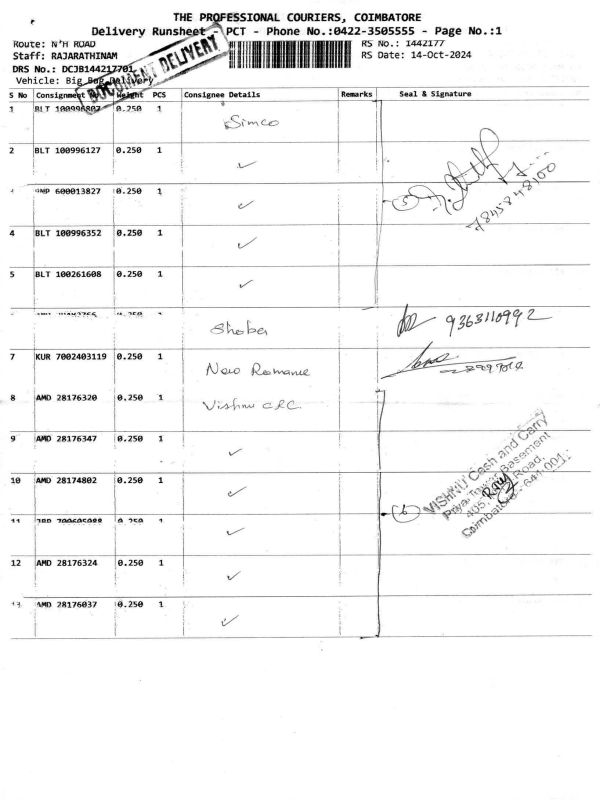 THE PROFESSIONAL COURIERS, COIMBATORE
Delivery Runsheet - PCT - Phone No.:0422-3505555 - Page No.:1
Route: N'H ROAD
RS No.: 1442177
Staff: RAJARATHINAM
RS Date: 14-Oct-2024
DRS No.: DCJB144217701
Vehicle: Big Bag Delivery
DOCUMENT DELIVERY
S No Consignment No Weight PCS Consignee Details Remarks Seal & Signature
1 BLT 100996807 0.250 1 Simco
2 BLT 100996127 0.250 1 ✓
600013827 0.250 1 ✓
5
7845848100
4 BLT 100996352 0.250 1 ✓
5 BLT 100261608 0.250 1 ✓
Shoba 9363110992
7 KUR 7002403119 0.250 1 New Romance
8 AMD 28176320 0.250 1 Vishnu CRC.
9 AMD 28176347 0.250 1 ✓
10 AMD 28174802 0.250 1 ✓
VISHNU Cash and Carry
Priya Tower Basement
405, Road,
Coimbatore - 641 001.
6
11 0.250 1 ✓
12 AMD 28176324 0.250 1 ✓
13 AMD 28176037 0.250 1 ✓